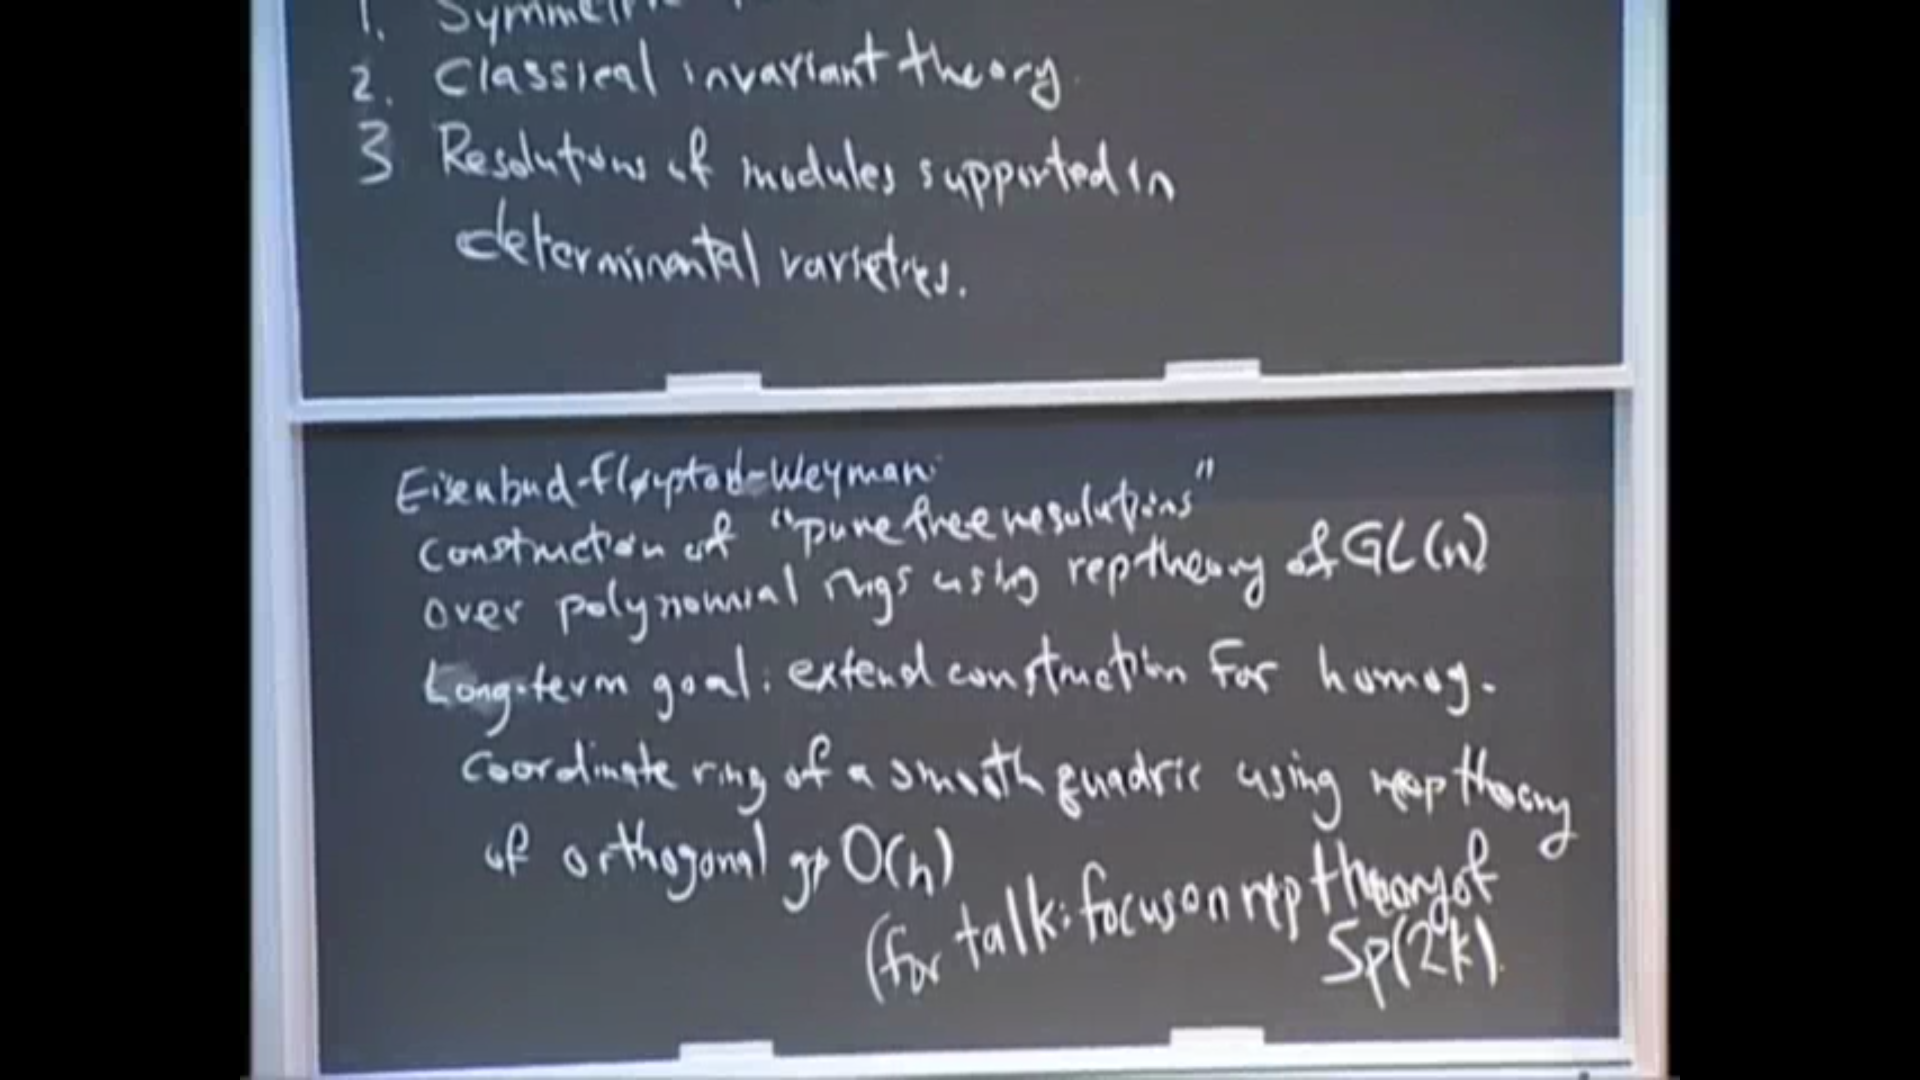 1. Symmetric
2. Classical invariant theory.
3 Resolutions of modules supported in
determinantal varieties.
Eisenbud-Fløystad-Weyman:
construction of "pure free resolutions"
over polynomial rings using rep theory of GL(n)
Long-term goal: extend construction for homog.
coordinate ring of a smooth quadric using rep theory
of orthogonal gp O(n)
(for talk: focus on rep theory of
Sp(2k).